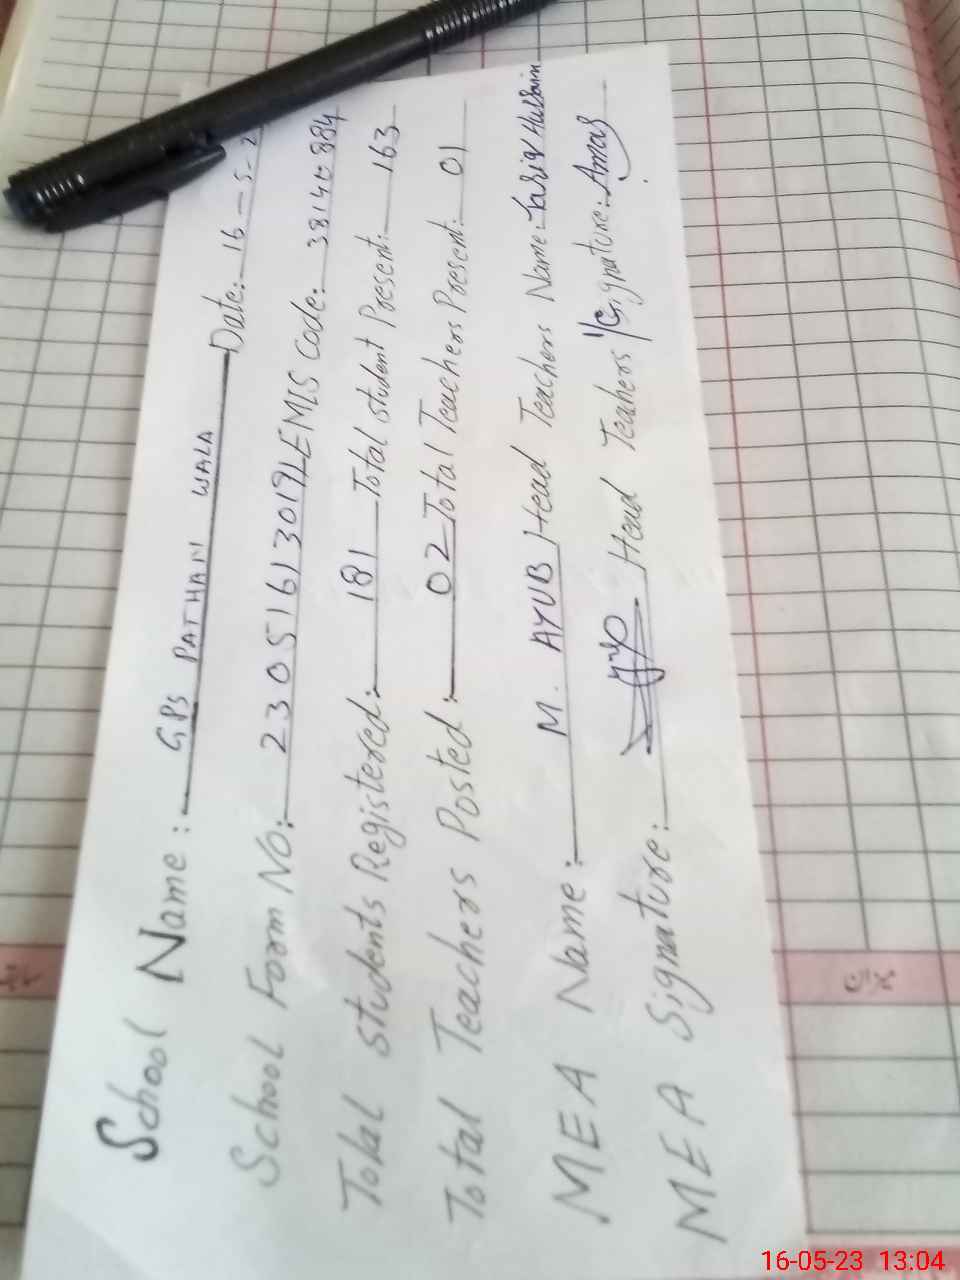 School Name :- GPS PATHAN WALA Date:- 16-5-2
School Form NO:- 23051613019 EMIS Code:- 38140884
Total Students Registered:- 181 Total student Present:- 163
Total Teachers Posted:- 02 Total Teachers Present:- 01
MEA Name:- M. AYUB Head Teachers Name:- Tariq Hussain
MEA Signature:- Head Teahers Signature:-
16-05-23 13:04